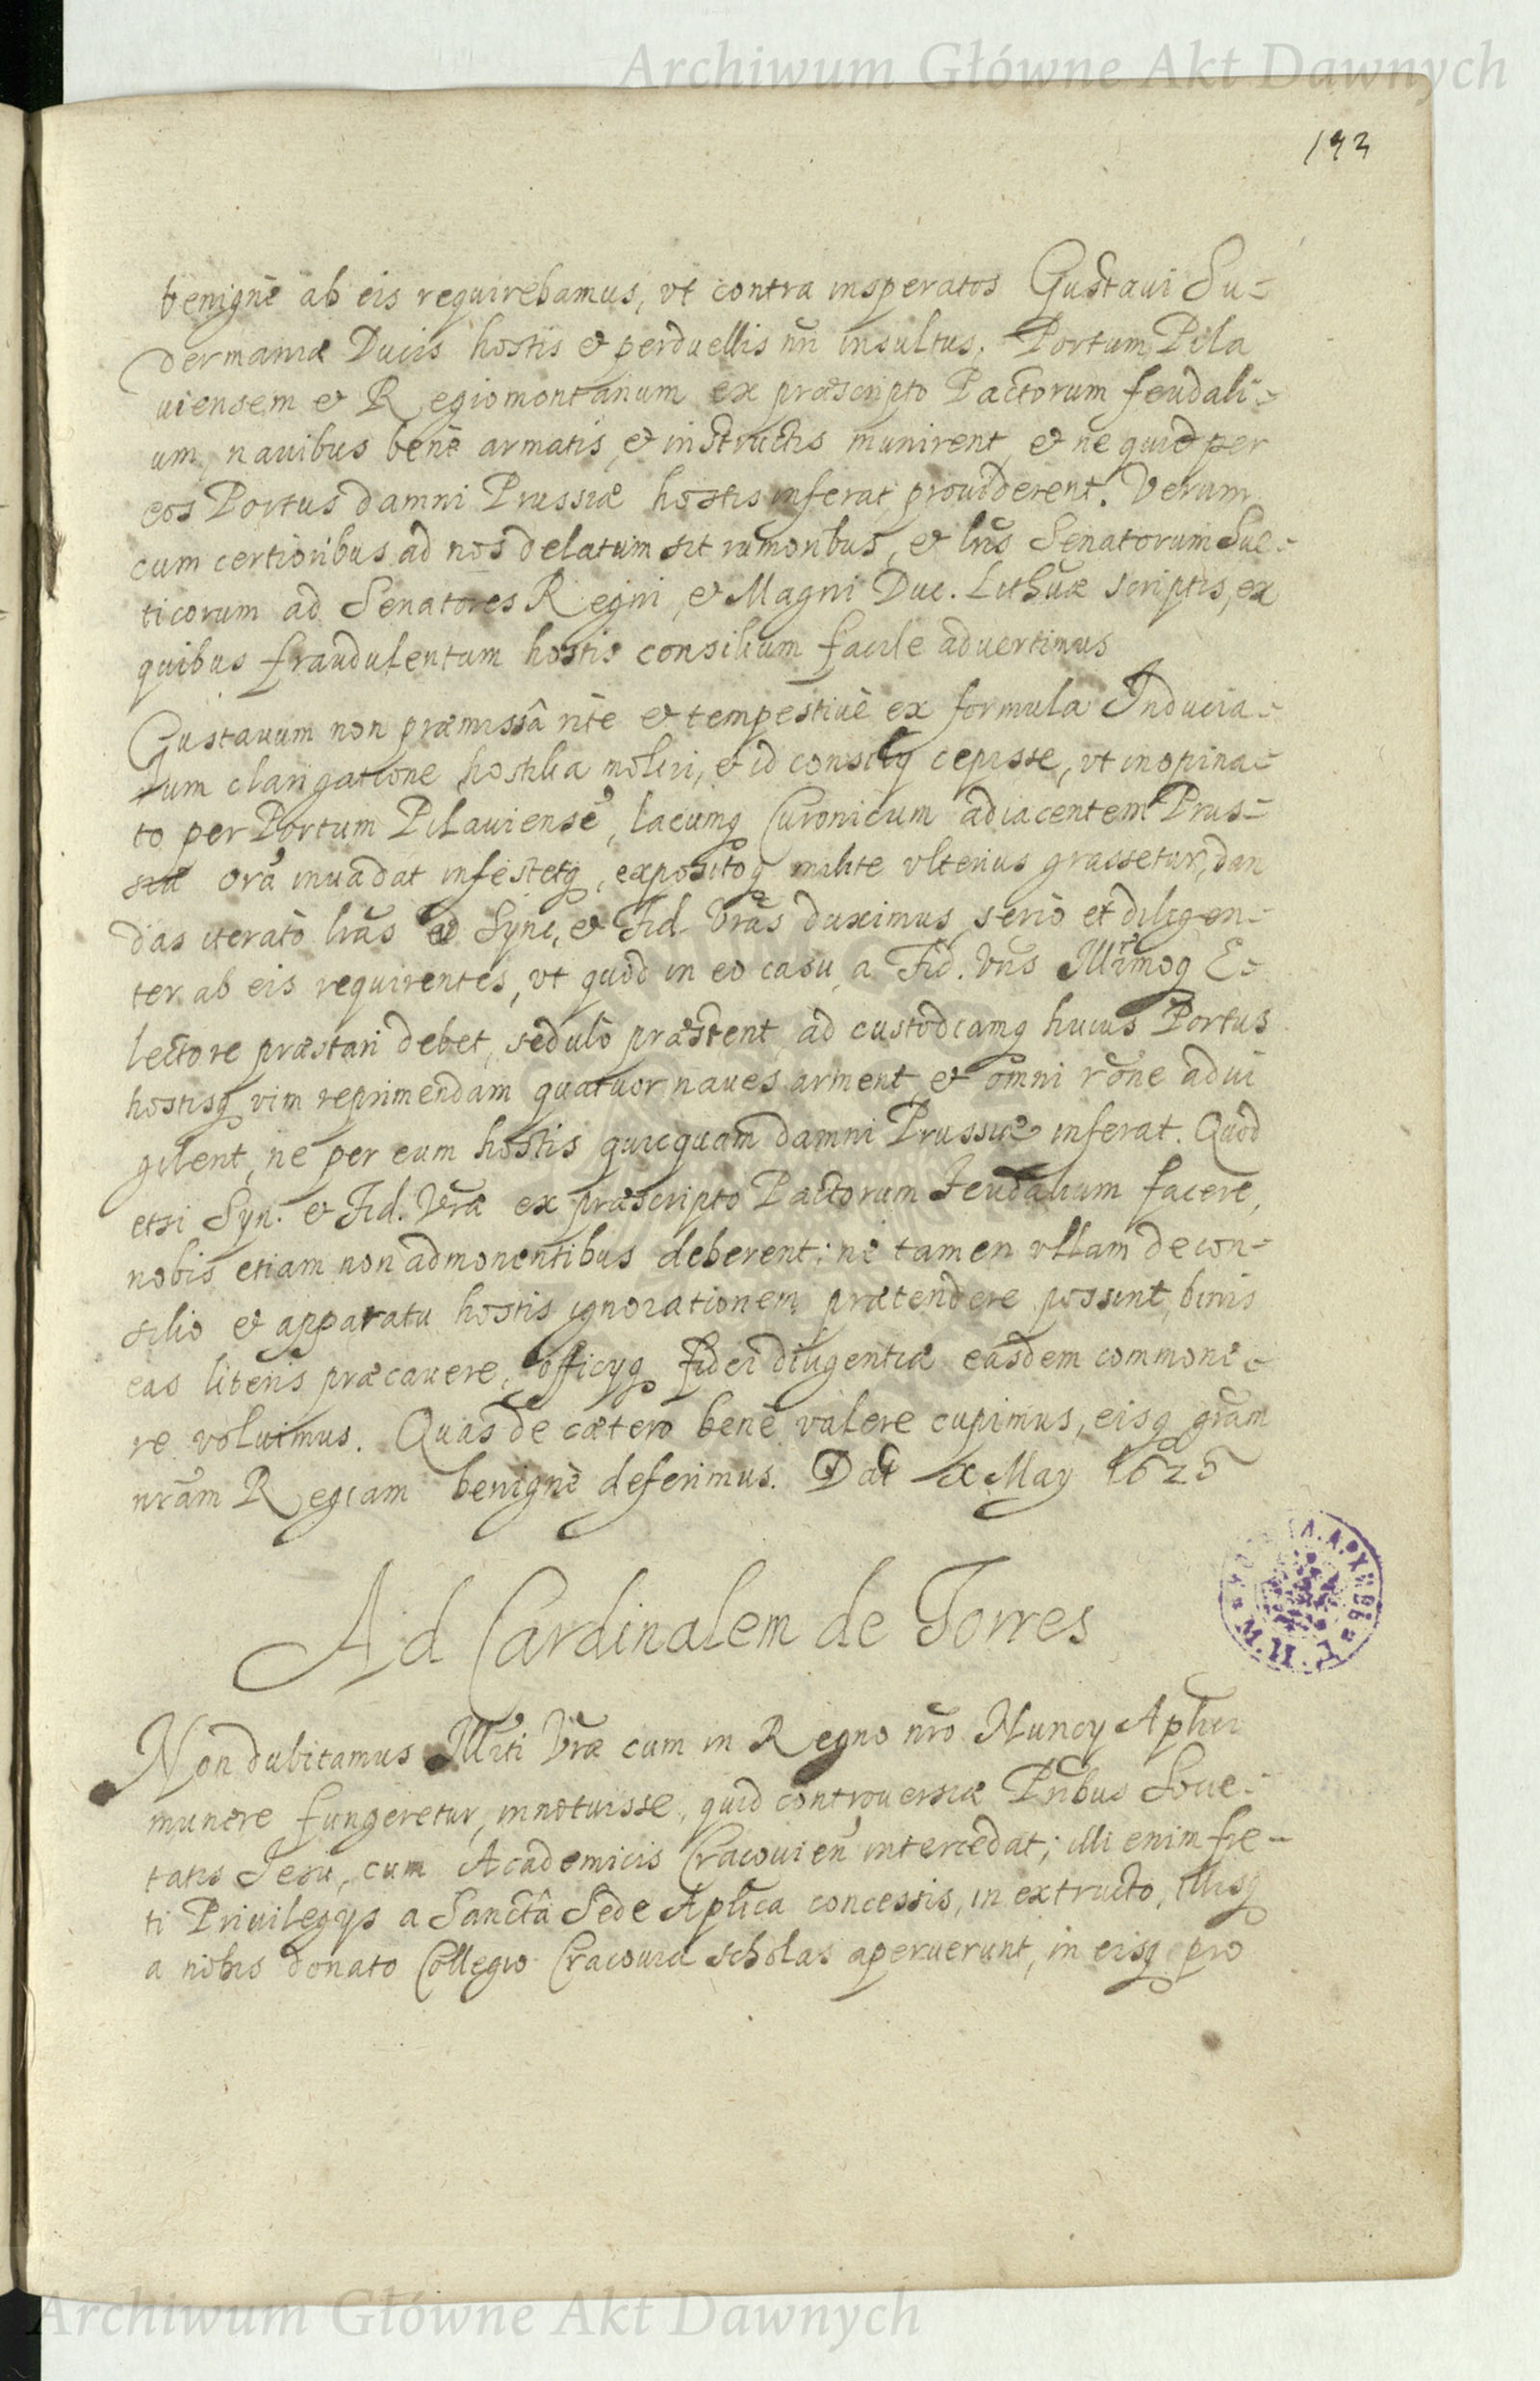 Archiwum Główne Akt Dawnych
193
benignè ab eis requirebamus, vt contra insperatos Gustaui Su-
dermaniæ Ducis hostis et perduellis nri insultus, Portum Pila
uiensem et Regiomontanum ex præscripto Pactorum feudali-
um, nauibus benè armatis, et instructis munirent, et ne quid per
eos Portus damni Prussiæ hostis inferat, prouiderent. Verum
cum certioribus ad nos delatum sit rumoribus, et lris Senatorum Sue-
ticorum ad Senatores Regni, et Magni Duc. Lithuæ scriptis, ex
quibus fraudulentum hostis consilium facile aduertimus
Gustauum non præmissâ ritè et tempestiuè ex formula Inducia-
rum clarigatione hostilia moliri, et id consilÿ cepisse, vt inopina-
to per Portum Pilauiensē, lacumq Curonicum adiacentem Prus-
siæ orā inuadat infestetq, expositoq milite vlterius grassetur, dan
das iteratò lras ad Sync. et Fid. Vras duximus, seriò et diligen-
ter ab eis requirentes, vt quod in eo casu, a Fid. Vris Illrimoq E-
lectore præstari debet, sedulò præstent ad custodiamq huius Portus
hostisq vim reprimendam quatuor naues arment, et omni rōne adui
gilent, ne per eum hostis quicquam damni Prussiæ inferat. Quod
etsi Syn. et Fid. Vræ ex præscripto Pactorum Feudalium facere,
nobis etiam non admonentibus deberent: ne tamen vllam de con-
silio et apparatu hostis ignorationem prætendere possint, binis
eas literis præcauere, officÿq fidei diligentiæ easdem commone-
re voluimus. Quas de cætero benè valere cupimus, eisq gram
nram Regiam benignè deferimus. Dat x May 1625
Ad Cardinalem de Torres
Non dubitamus Illrti Vræ cum in Regno nro Nuncÿ Aplici
munere fungeretur, innotuisse, quid controuersiæ Pribus Socie-
tatis Jesu, cum Academicis Cracouien intercedat; illi enim fre-
ti Priuilegÿs a Sanctâ Sede Aplica concessis, in extructo, illisq
a nobis donato Collegio Cracouiæ scholas aperuerunt, in eisq pro
Archiwum Główne Akt Dawnych